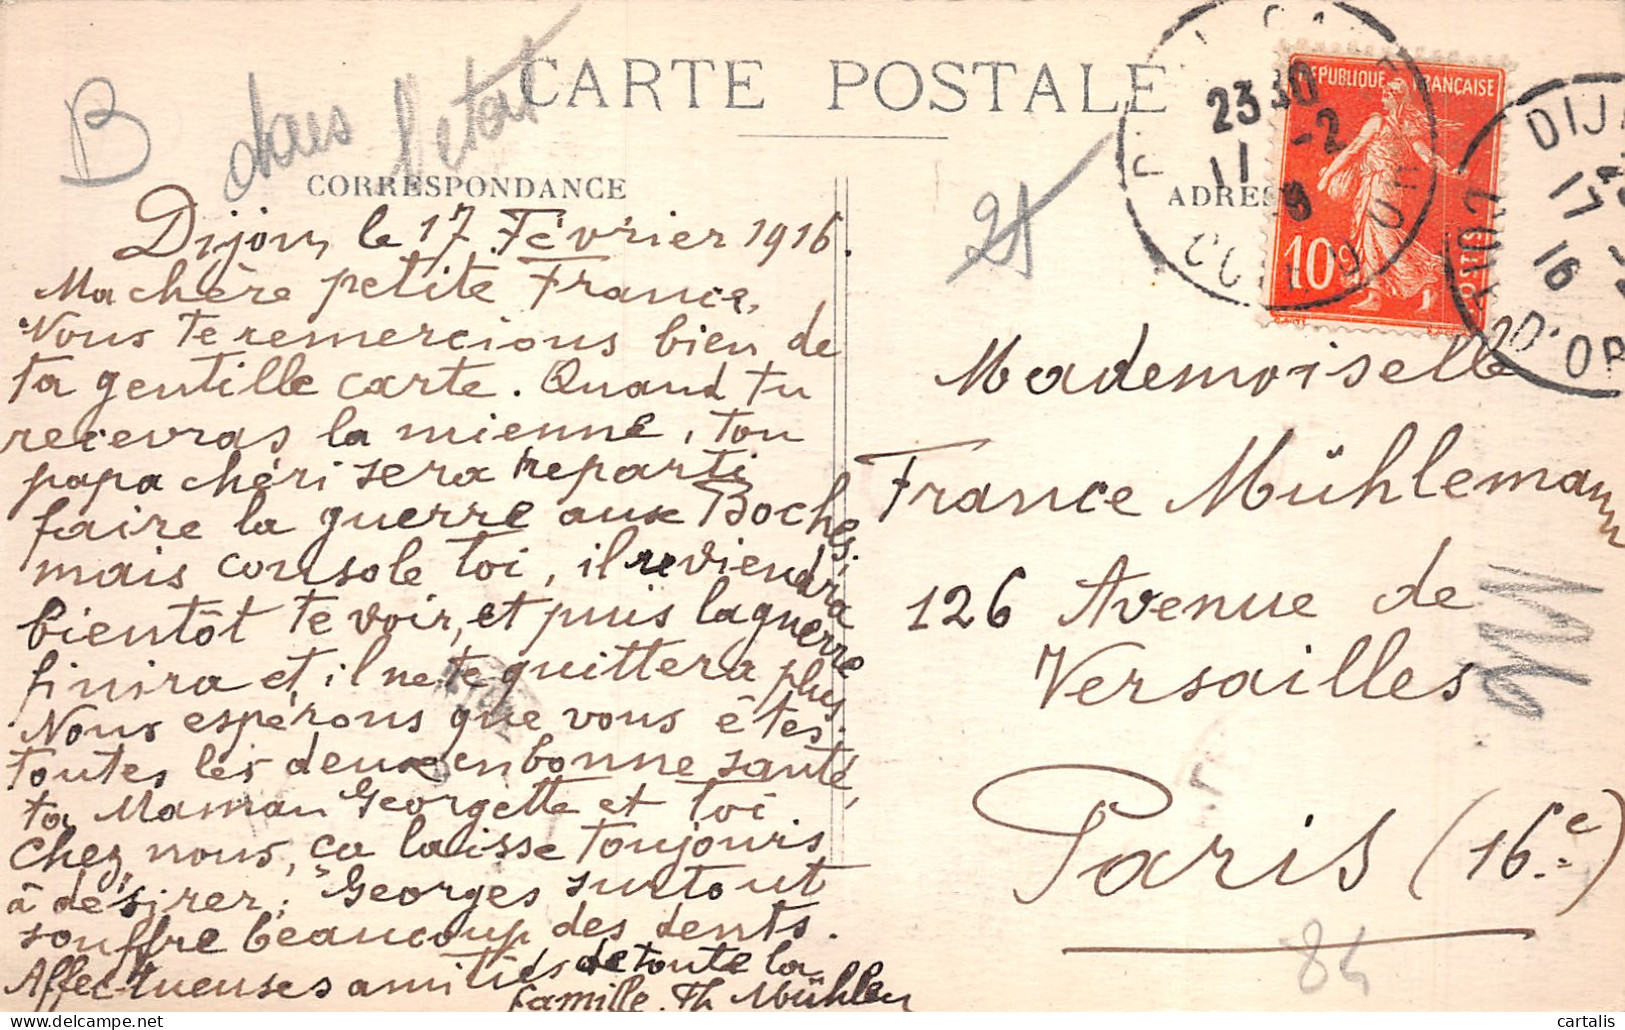 CARTE POSTALE
B dans l'etat
CORRESPONDANCE
Dijon, le 17 Février 1916.
Ma chère petite France,
Nous te remercions bien de
ta gentille carte. Quand tu
recevras la mienne, ton
papa chéri sera reparti
faire la guerre aux Boches;
mais console toi, il reviendra
bientôt te voir, et puis la guerre
finira et il ne te quittera plus.
Nous espérons que vous êtes
toutes les deux en bonne santé,
ta Maman Georgette et toi
Chez nous, ça laisse toujours
à désirer; Georges surtout
souffre beaucoup des dents.
Affectueuses amitiés de toute la
famille. Th Mühlem
ADRES
23 30
11 -2
RÉPUBLIQUE FRANÇAISE
10c
POSTES
DIJ
17
16
D'OR
Mademoiselle
France Mühlemann
126 Avenue de
Versailles
Paris (16e)
84
cartalis